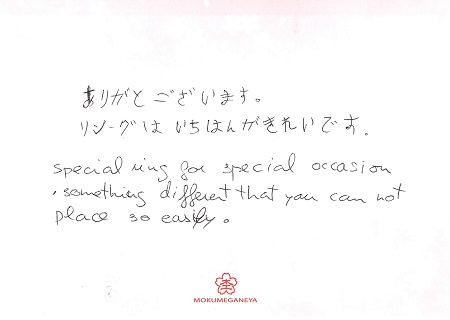 ありがとございます。
リングはいちはんがきれいです。
special ring for special occasion
, something different that you can not
place so easily.
MOKUMEGANEYA